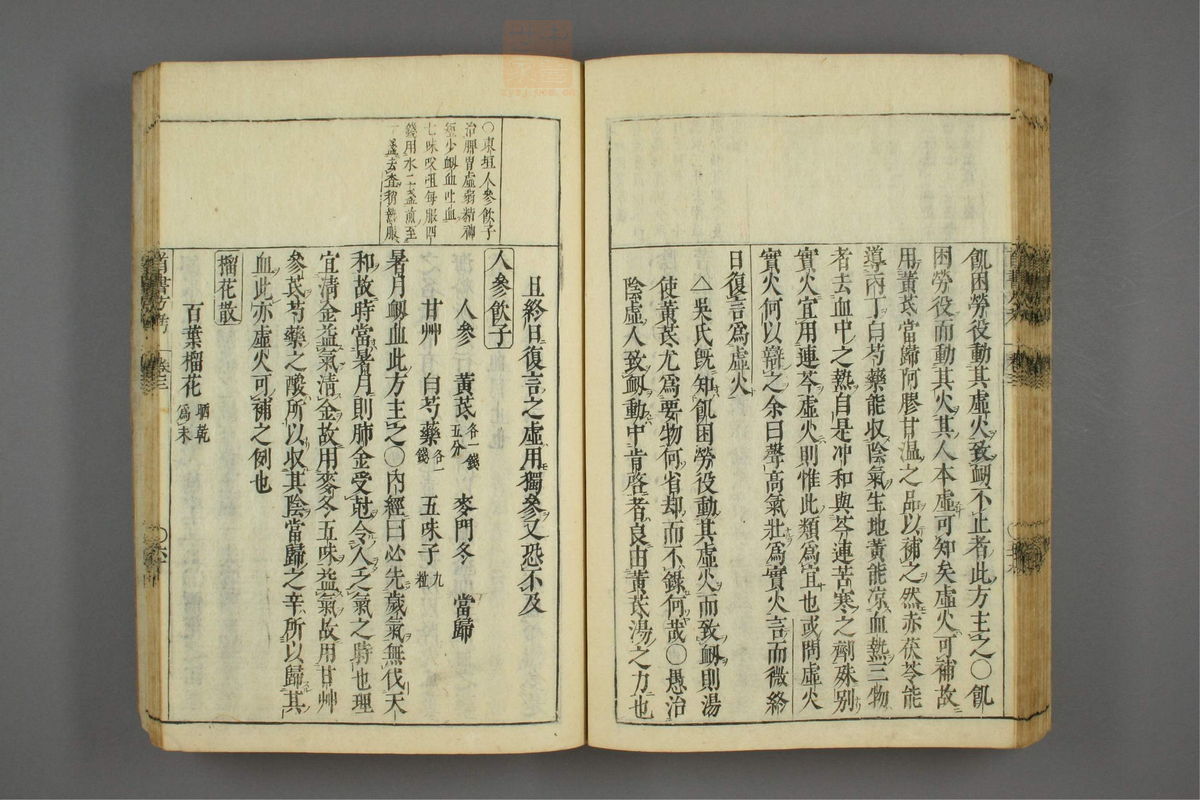 飢困勞役動其虛火致衂不止者此方主之〇飢
困勞役而動其火其人本虛可知矣虛火可補故
用黃芪當歸阿膠甘温之品以補之然赤茯苓能
導丙丁白芍藥能收陰氣生地黃能凉血熱三物
者去血中之熱自是冲和與芩連苦寒之劑殊別
實火宜用連芩虛火則惟此類爲宜也或問虛火
實火何以辯之余曰聲高氣壯爲實火言而微終
日復言爲虛火
△吳氏旣知飢困勞役動其虛火而致衂則湯
使黃芪尤爲要物何省却而不錄何哉〇愚治
陰虛人致衂動中肯啓者良由黃芪湯之力也
且終日復言之虛用獨參又恐不及
〇東垣人參飮子
治脾胃虛弱精神
經少衂血吐血
七味㕮咀每服四
錢用水二盞煎至
一盞去査稍熱服
人參飮子
人參 黃芪各一錢五分 麥門冬 當歸
甘艸 白芍藥各一錢 五味子九粒
暑月衂血此方主之〇內經曰必先歲氣無伐天
和故時當暑月則肺金受尅令人乏氣之時也理
宜清金益氣清金故用麥冬五味益氣故用甘艸
參芪芍藥之酸所以收其陰當歸之辛所以歸其
血此亦虛火可補之例也
榴花散
百葉榴花晒乾爲末
首書方考 卷三